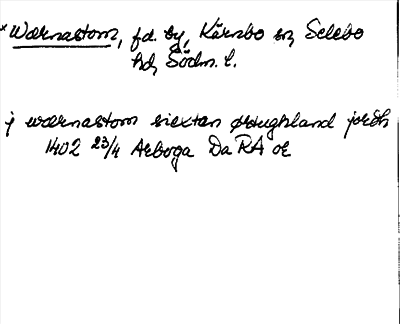 *Wærnastom, fd. by, Kärnbo sn, Selebo
hd, Södm. l.
j wærnastom siextan ørtughland jordh
1402 23/4 Arboga Da RA or